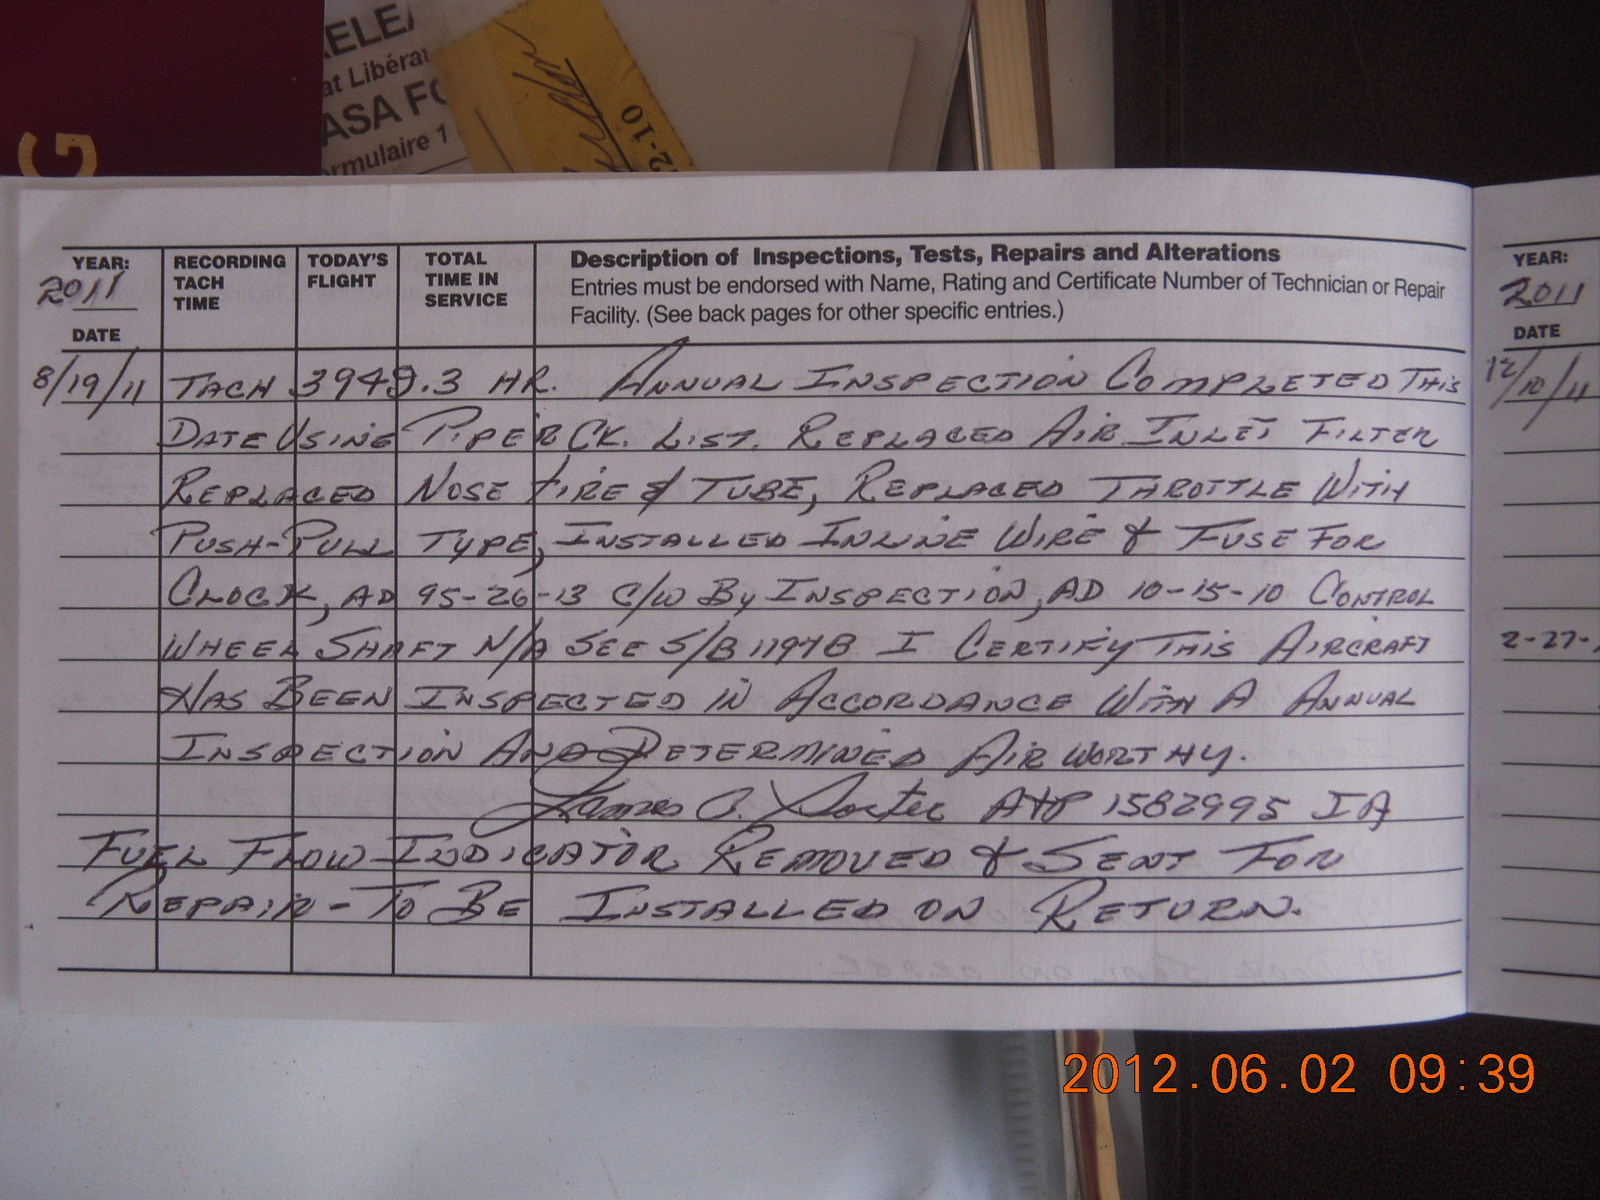 G
RELEA
at Libérat
ASA FO
ormulaire 1
2-10
YEAR:
2011
DATE
RECORDING TACH TIME
TODAY'S FLIGHT
TOTAL TIME IN SERVICE
Description of Inspections, Tests, Repairs and Alterations
Entries must be endorsed with Name, Rating and Certificate Number of Technician or Repair
Facility. (See back pages for other specific entries.)
8/19/11 TACH 3949.3 HR. ANNUAL INSPECTION COMPLETED THIS
DATE USING PIPER CK. LIST. REPLACED AIR INLET FILTER
REPLACED NOSE TIRE & TUBE, REPLACED THROTTLE WITH
PUSH-PULL TYPE, INSTALLED INLINE WIRE & FUSE FOR
CLOCK, AD 95-26-13 C/W BY INSPECTION, AD 10-15-10 CONTROL
WHEEL SHAFT N/A SEE S/B 1197B I CERTIFY THIS AIRCRAFT
HAS BEEN INSPECTED IN ACCORDANCE WITH A ANNUAL
INSPECTION AND DETERMINED AIRWORTHY.
James C. A&P 1582995 IA
FUEL FLOW INDICATOR REMOVED & SENT FOR
REPAIR - TO BE INSTALLED ON RETURN.
YEAR:
2011
DATE
12/10/11
2-27-
2012.06.02 09:39